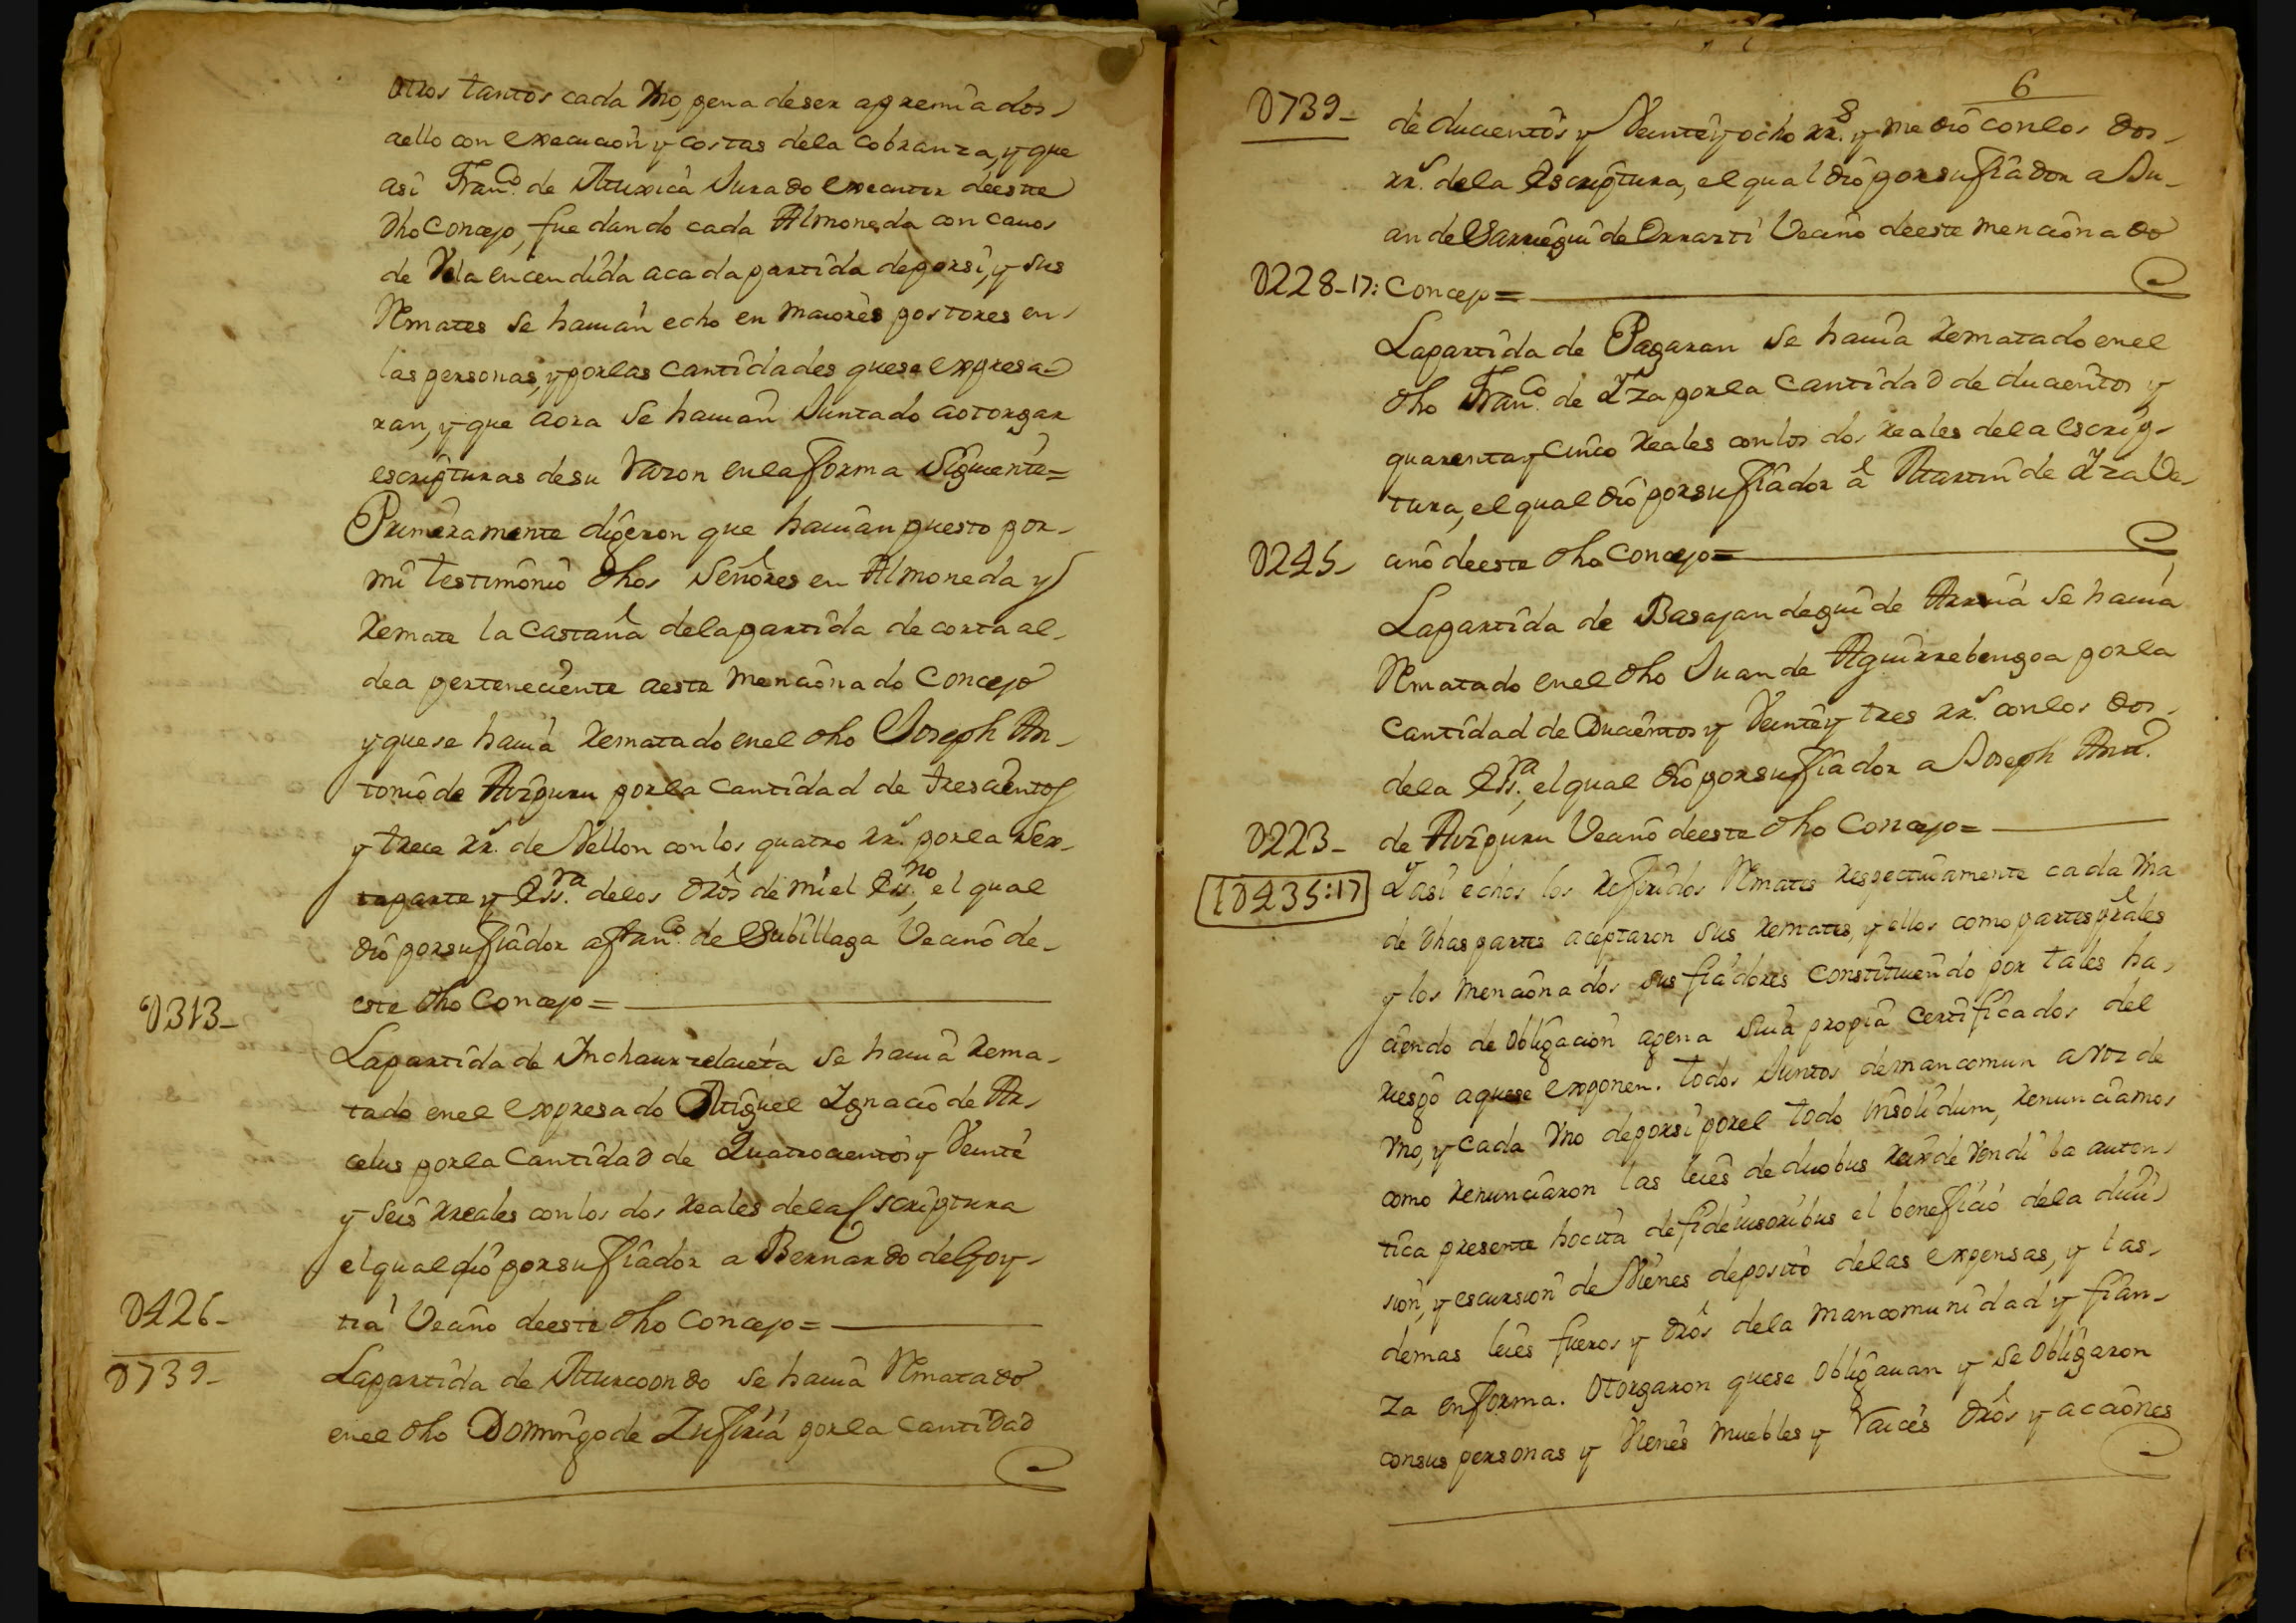 otros tantos cada Vno, pena de ser apremiados
aello con execucion y costas dela cobranza, y que
asi Franco. de Muxica Jurado executor deeste
dho Concejo, fue dando cada Almoneda con cauos
de Vela encendida acada partida deporsi, y sus
Rmates se hauian echo en maiores postores en
las personas, y porlas cantidades quese expresa
ran, y que aora se hauian Juntado aotorgar
escripturas desu razon enlaforma Siguiente=
Primeramente digeron que hauian puesto por
mi testimonio dhos Señores en Almoneda y
Remate la castaña delapartida de corta al
dea perteneciente aeste mencionado Concejo
yquese hauia Rematado enel dho Joseph An
tonio de Aizpuru porla cantidad de trescientos
y trece rrs. de Vellon conlos quatro rrs. porla sex
taparte y Essra. delos dros de mi el Essno, el qual
dió porsufiador afranco. de Subillaga Vecino de
0313_ este dho Concejo=
Lapartida de Inchaurzelaieta se hauia Rema
tado enel expresado Miguel Ignacio de Ar
celus porla Cantidad de Quatrocientos y Veinte
y seis rreales conlos dos Reales dela Escriptura
elqual dió porsufiador a Bernardo deGoy
0426_ tia Vecino deeste dho Concejo=
0739_ Lapartida de Murcoondo se hauia Rmatado
enel dho Domingo de Zufiria porla cantidad
6
0739_ de ducientos y Veinteyocho rrs. y medio conlos dos
rrs. dela Escriptura, el qual dió porsufiador a Ju
an de Sarriegui de Errarti Vecino deeste mencionado
0228_17: Concejo=
Lapartida de Pagaran se hauia Rematado enel
dho Franco. de Yza porla cantidad de ducientos y
quarentaycinco Reales conlos dos Reales dela escrip
tura, el qual dió porsufiador á Martin de Yza Ve
0245_ cino deeste dho Concejo=
Lapartida de Basajandegui de Arria se hauia
Rmatado enel dho Juan de Aguirrebengoa porla
cantidad de Ducientos y Veinte y tres rrs. conlos dos
dela Essra., elqual dió porsufiador a Joseph Anto.
0223_ de Aizpuru Vecino deeste dho Concejo=
10435:17 Y asi echos los Referidos Rmates respectiuamente cada Vna
de dhas partes aceptaron sus Remates, y ellos como partes prales
y los mencionados sus fiadores constituiendo por tales ha
ciendo de obligacion agena suia propia certificados del
riesgo aquese exponen. todos Juntos demancomun a voz de
Vno, y cada Vno deporsi porel todo insolidum, renunciamos
como renunciaron las leies de duobus reix de Vendi la auten
tica presente hocita defideiusoribus el beneficio dela diui
sion, y escursion de Vienes deposito delas expensas, y las
demas leies fueros y dros dela mancomunidad y fian
za enforma. Otorgaron quese obligauan y se obligaron
consus personas y Vienes muebles y raices dros y acciones